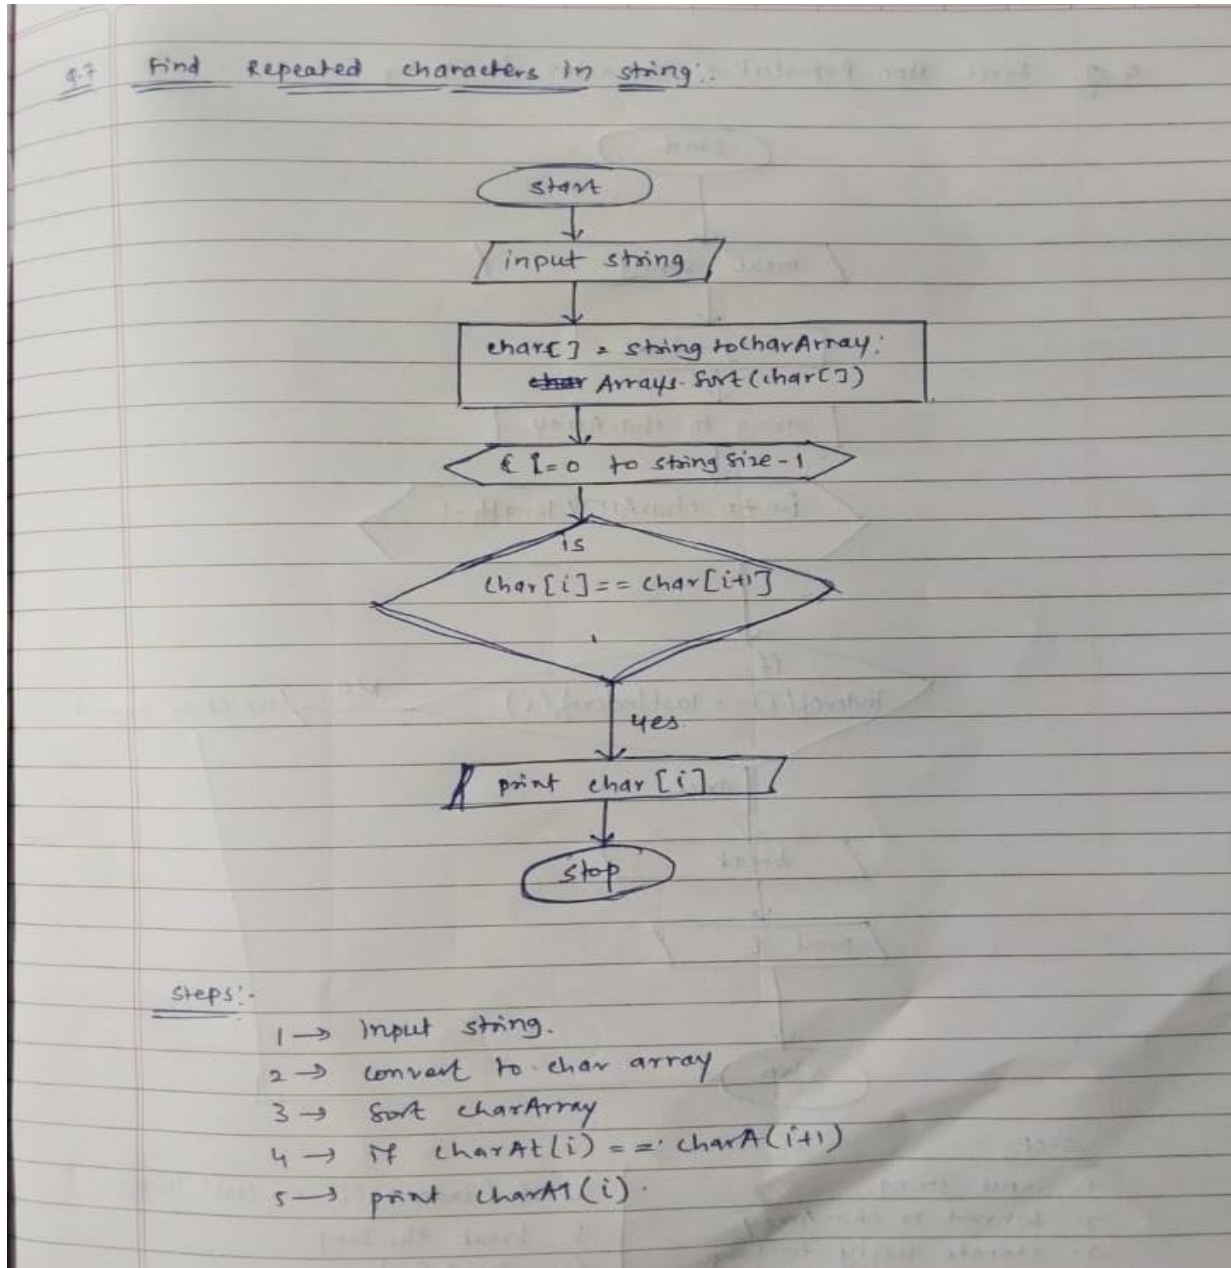 Q.7 Find Repeated characters in string:.
start
input string
char[] = string toCharArray;
char Arrays.sort(char[])
i=0 to string size-1
is
char[i]== char[i+1]
yes
print char[i]
stop
Steps:-
1 → Input string.
2 → convert to char array
3 → Sort charArray
4 → if charAt(i) == charA(i+1)
5 → print charAt(i).